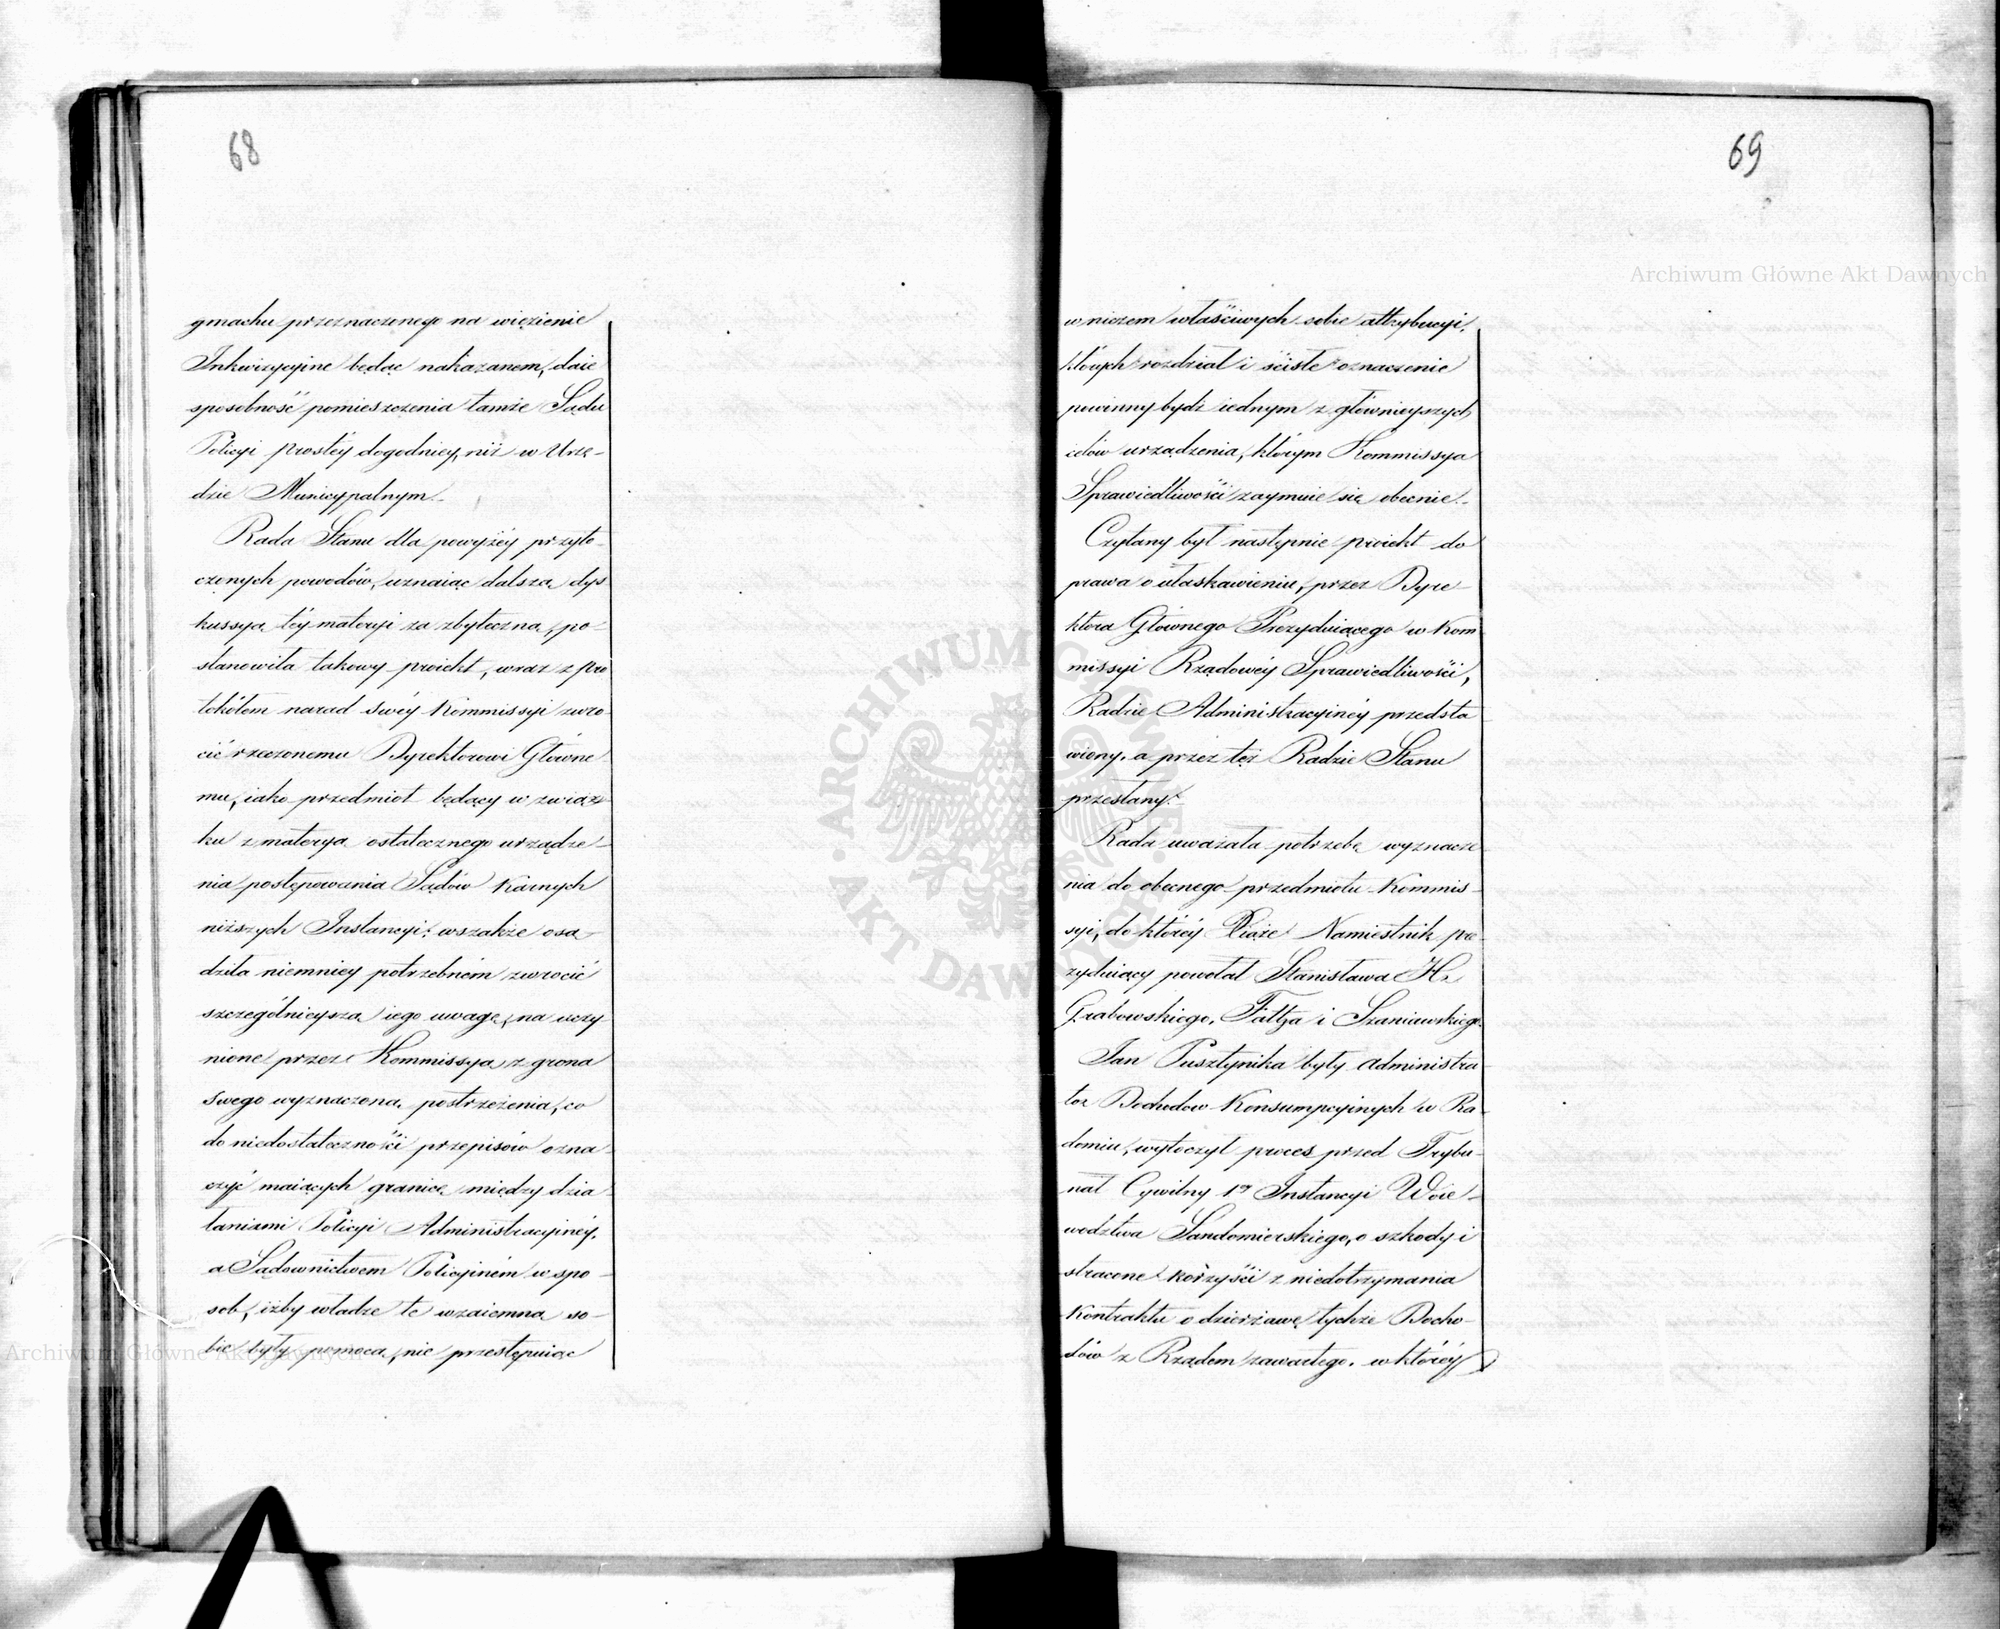 68
gmachu przeznaczonego na więzienie
Inkwizycyine będąc nakazanem, daie
sposobność pomieszczenia tamże Sądu
Policyi prostéy dogodniey, niż w Urzę-
dzie Municypalnym.
Rada Stanu dla powyżéy przyto-
czonych powodów, uznaiąc dalszą dys
kussyą téy materyi za zbyteczną, po-
stanowiła takowy proiekt, wraz z pro
tokółem narad swéy Kommissyi zwró-
cić rzeczonemu Dyrektorowi Główne-
mu, iako przedmiot będący w związ-
ku z materyą ostatecznego urządze-
nia postępowania Sądów Karnych
niższych Instancyi; wszakże osą-
dziła niemniey potrzebném zwrócić
szczególnieyszą iego uwagę, na uczy
nione przez Kommissyą z grona
swego wyznaczoną, postrzeżenia, co
do niedostateczności przepisów ozna-
czyć maiących granice między dzia-
łaniami Policyi Administracyinéy,
a Sądownictwem Policyiném w spo-
sób, iżby władze te wzaiemną so-
bie były pomocą, nie przestępuiąc
69
w niczem właściwych sobie attrybucyi,
których rozdział i ścisłe oznaczenie
powinny bydź iednym z główniéyszych
celów urządzenia, którym Kommissya
Sprawiedliwości zaymuie się obecnie.
Czytany był następnie proiekt do
prawa o ułaskawieniu, przez Dyre-
ktora Głównego Prezyduiącego w Kom
missyi Rządowéy Sprawiedliwości,
Radzie Administracyinéy przedsta
wiony, a przez też Radzie Stanu
przesłany.
Rada uważała potrzebę wyznacze-
nia do obecnego przedmiotu Kommis-
syi, do któréy Xiąże Namiestnik pre-
zyduiący powołał Stanisława Hr
Grabowskiego, Faltza i Szaniawskiego.
Jan Pusztynika były Administra-
tor Dochodów Konsumpcyinych w Ra-
domiu, wytoczył proces przed Trybu-
nał Cywilny 1éy Instancyi Woie-
wództwa Sandomierskiego, o szkody i
stracone korzyści z niedotrzymania
Kontraktu o dzierżawę tychże Docho-
dów z Rządem zawartego, w któréy
Archiwum Główne Akt Dawnych
ARCHIWUM GŁÓWNE AKT DAWNYCH
Archiwum Główne Akt Dawnych